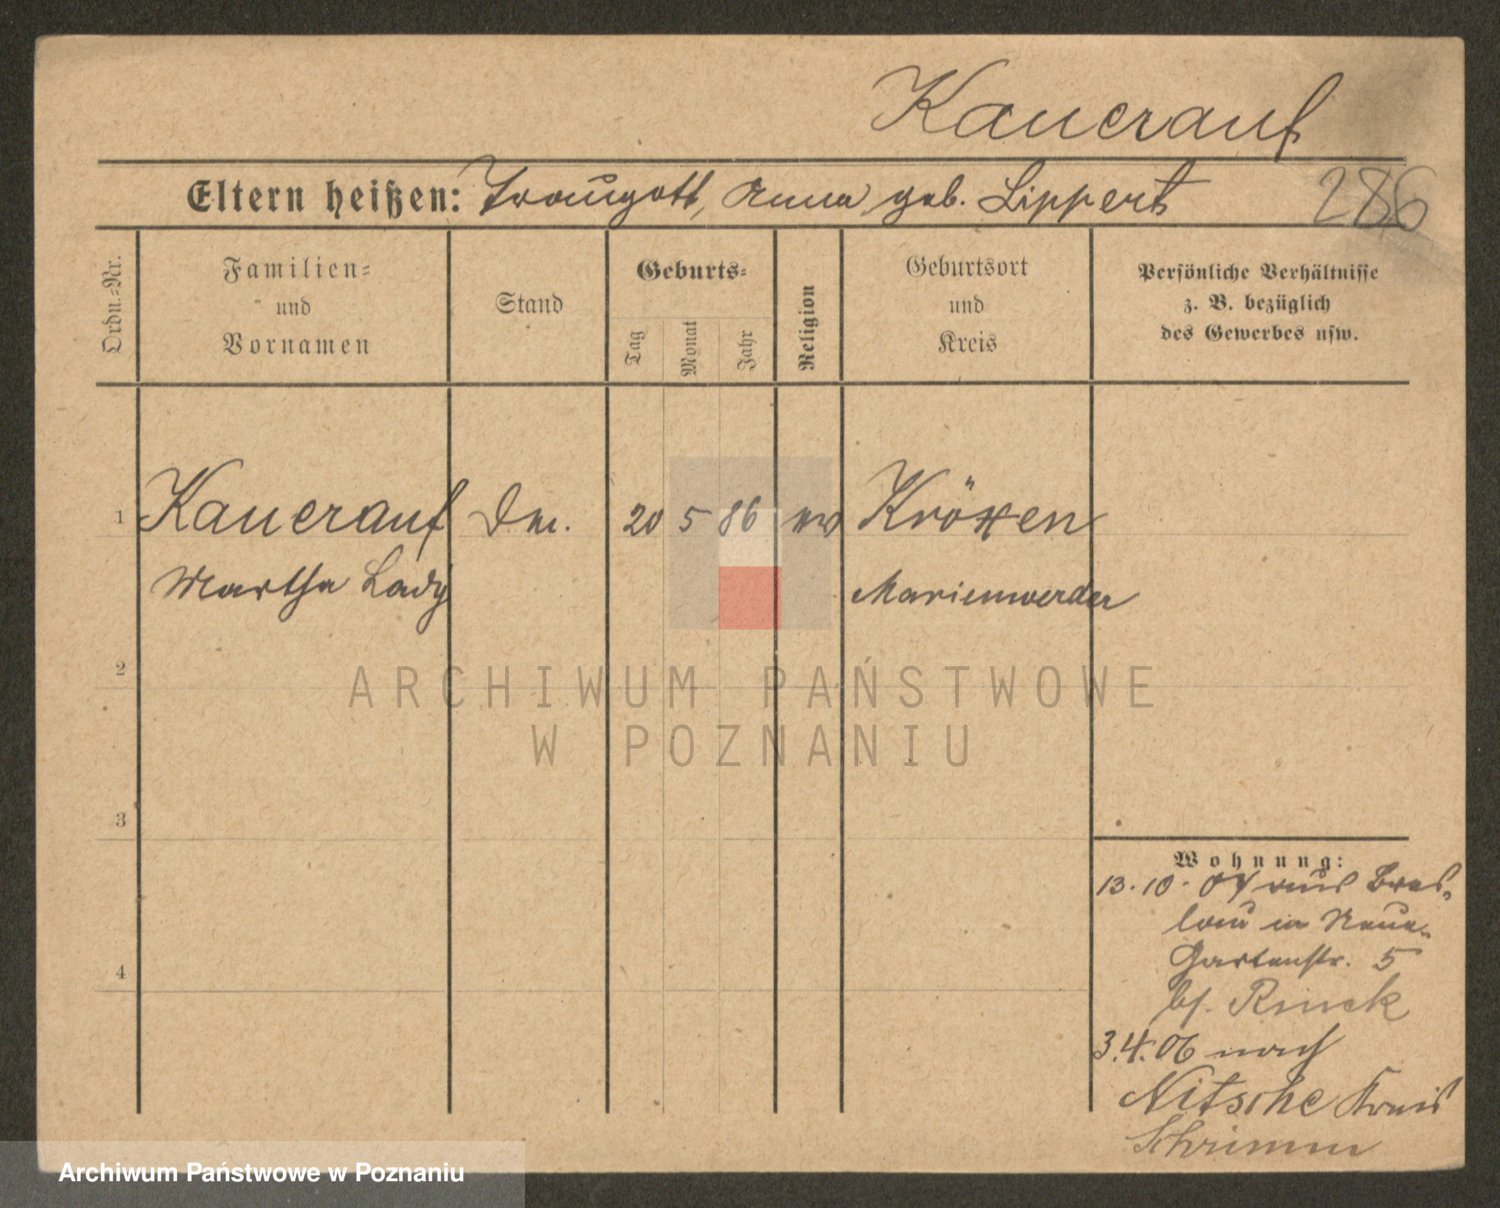 Kauerauf
Eltern heißen: Traugott, Anna geb. Lippert
286
Ordn.-Nr.
Familien-
und
Vornamen
Stand
Geburts-
Tag
Monat
Jahr
Religion
Geburtsort
und
Kreis
Persönliche Verhältnisse
z. B. bezüglich
des Gewerbes usw.
1 Kauerauf 20 5 86 ev Kröxen
Martha Marienwerder
2
3
4
Wohnung:
13.10.04 aus Bres-
lau in Neue-
Gartenstr. 5
bf. Rinck
3.4.06 nach
Nitsche Kreis
Schrimm
ARCHIWUM PAŃSTWOWE
W POZNANIU
Archiwum Państwowe w Poznaniu